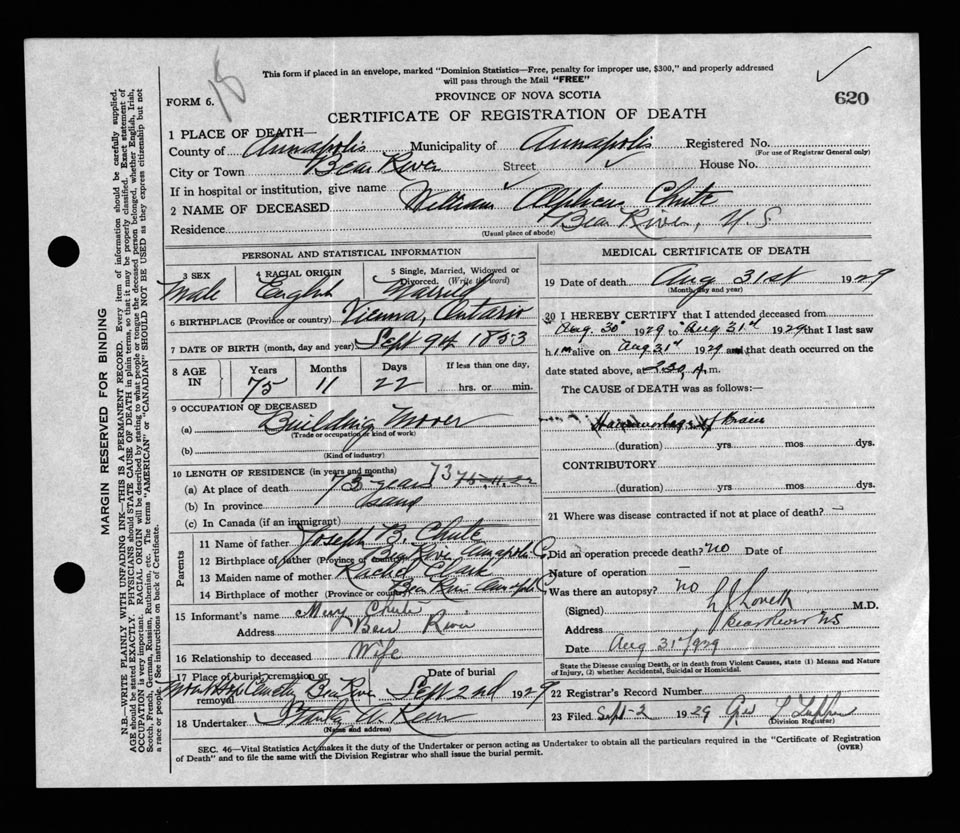 18
This form if placed in an envelope, marked "Dominion Statistics—Free, penalty for improper use, $300," and properly addressed
will pass through the Mail "FREE"
FORM 6.
PROVINCE OF NOVA SCOTIA
620
CERTIFICATE OF REGISTRATION OF DEATH
1 PLACE OF DEATH—
County of Annapolis Municipality of Annapolis Registered No.
(For use of Registrar General only)
City or Town Bear River Street House No.
If in hospital or institution, give name
2 NAME OF DECEASED William Alpheus Chute
Residence Bear River, N.S.
(Usual place of abode)
PERSONAL AND STATISTICAL INFORMATION
3 SEX Male
4 RACIAL ORIGIN English
5 Single, Married, Widowed or Divorced. (Write the word) Married
6 BIRTHPLACE (Province or country) Vienna, Ontario
7 DATE OF BIRTH (month, day and year) Sept 9th 1853
8 AGE IN Years 75 Months 11 Days 22 If less than one day, hrs. or min.
9 OCCUPATION OF DECEASED
(a) Building Mover
(Trade or occupation or kind of work)
(b)
(Kind of industry)
10 LENGTH OF RESIDENCE (in years and months)
(a) At place of death 73 years 73 75-11-22
(b) In province Same
(c) In Canada (if an immigrant)
Parents
11 Name of father Joseph B. Chute
12 Birthplace of father (Province or country) Bear River Annapolis Co
13 Maiden name of mother Rachel Clark
14 Birthplace of mother (Province or country) Bear River Annapolis Co
15 Informant's name Mary Chute
Address Bear River
16 Relationship to deceased Wife
17 Place of burial, cremation or removal Mount Hope Cemetery Bear River Date of burial Sept 2nd 1929
18 Undertaker
(Name and address)
MEDICAL CERTIFICATE OF DEATH
19 Date of death Aug 31st 1929
(Month, day and year)
20 I HEREBY CERTIFY that I attended deceased from
Aug. 30 1929 to Aug 31st 1929 that I last saw
him alive on Aug 31st 1929 and that death occurred on the
date stated above, at 2.30 A.m.
The CAUSE of DEATH was as follows:—
Haemorrhage of brain
(duration) yrs mos dys.
CONTRIBUTORY
(duration) yrs mos dys.
21 Where was disease contracted if not at place of death? —
Did an operation precede death? no Date of
Nature of operation —
Was there an autopsy? no
(Signed) L J Lovett M.D.
Address Bear River NS
Date Aug 31st 1929
State the Disease causing Death, or in death from Violent Causes, state (1) Means and Nature
of Injury, (2) whether Accidental, Suicidal or Homicidal.
22 Registrar's Record Number
23 Filed Sept-2 1929
(Division Registrar)
SEC. 46—Vital Statistics Act makes it the duty of the Undertaker or person acting as Undertaker to obtain all the particulars required in the "Certificate of Registration
of Death" and to file the same with the Division Registrar who shall issue the burial permit.
(OVER)
MARGIN RESERVED FOR BINDING
N.B.—WRITE PLAINLY, WITH UNFADING INK—THIS IS A PERMANENT RECORD. Every item of information should be carefully supplied.
AGE should be stated EXACTLY. PHYSICIANS should STATE CAUSE OF DEATH in plain terms, so that it may be properly classified. Exact statement of
OCCUPATION is very important. RACIAL ORIGIN will be described by stating to what people or tongue the deceased person belonged, whether English, Irish,
Scotch, French, German, Russian, Ruthenian, etc. The terms "AMERICAN" or "CANADIAN" SHOULD NOT BE USED as they express citizenship but not
a race or people. See instructions on back of Certificate.